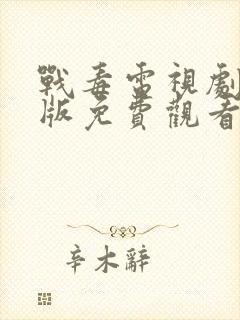 戰毒雷視劇
版免費觀看
辛木辭